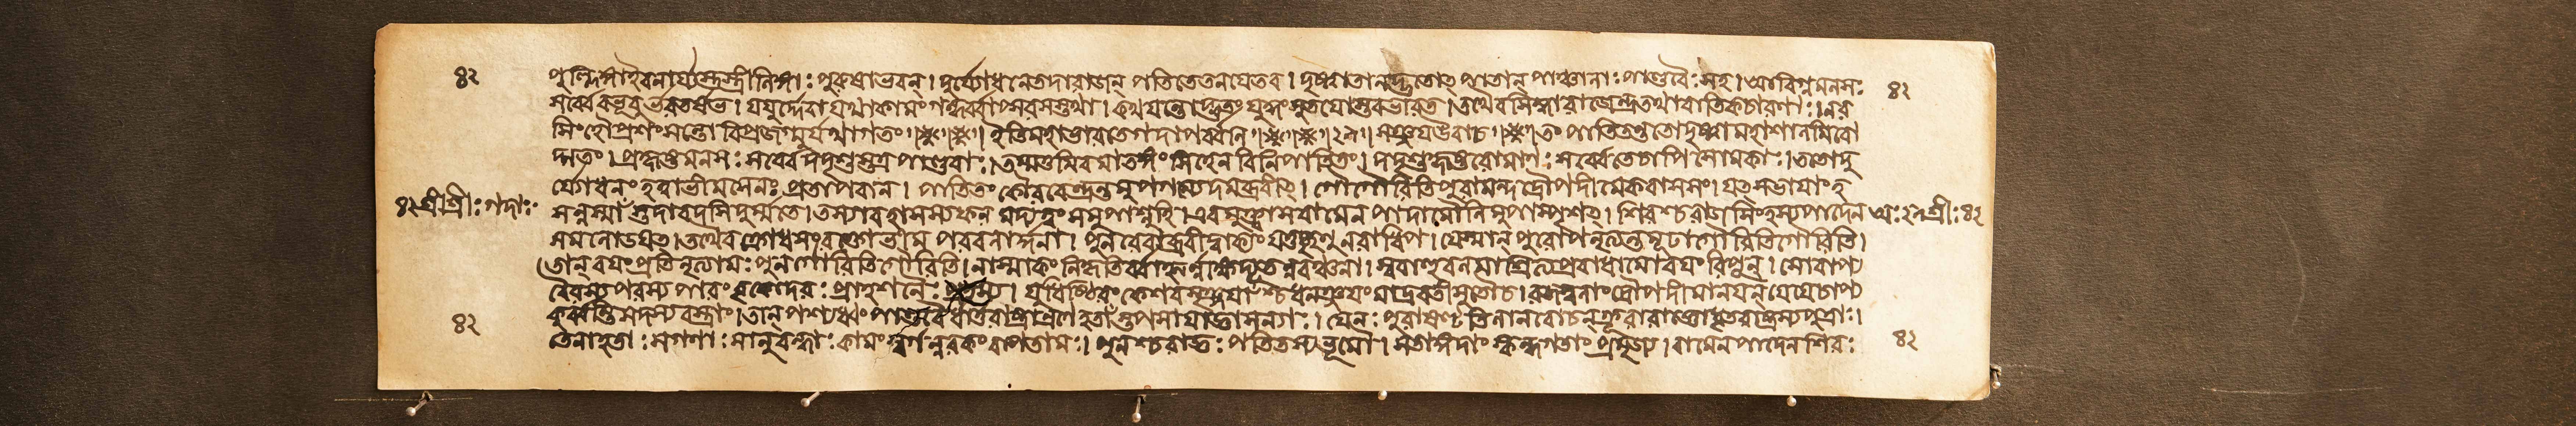 ৪২
পুল্লিঙ্গাইবনার্য্যস্তুস্ত্রীলিঙ্গাঃ পুরুষাভবন্। দুর্য্যোধনেতদারাজন্ পতিতেতনয়েতব। দৃষ্ট্বাতানদ্ভুতোৎপাতান্ পাঞ্চালাঃ পাণ্ডবৈঃ সহ। আবিগ্নমনসঃ
সর্ব্বেবভূবুর্ভরতর্ষভ। যযুর্দ্দেবাযথাকামং গন্ধর্ব্বাপ্সরসস্তথা। কথয়ন্তোদ্ভুতং যুদ্ধং সুতয়োস্তবভারত। তথৈবসিদ্ধারাজেন্দ্রতথাবাতিকচারণাঃ। নর
৪২
সিংহৌপ্রশংসন্তো বিপ্রজগ্মুর্যথাগতং। ইতিমহাভারতেগদাপর্ব্বনি। সঞ্জয়উবাচ। তং পাতিতন্ততোদৃষ্ট্বামহাশালমিবো
দ্গতং। প্রহৃষ্টমনসঃ সর্ব্বেদদৃশুস্তত্র পাণ্ডবাঃ। উন্মত্তমিবমাতঙ্গং সিংহেন বিনিপাতিতং। দদৃশুর্হৃষ্টরোমাণঃ সর্ব্বেতেচাপি সোমকাঃ। ততোদু
র্যোধনং হত্বাভীমসেনঃ প্রতাপবান। পাতিতং কৌরবেন্দ্রন্তমুপগম্যেদমব্রবীৎ। গৌর্গৌরিতিপুরামন্দদ্রৌপদীমেকবাসসং। যৎসভায়াং হ
৪২ শ্রীশ্রীঃ গদাঃ
সন্নস্মাঁস্তদাবদসিদুর্ম্মতে। তস্যাবহাসস্যফল মদ্যত্বং সমুপাপ্নুহি। এবমুক্ত্বাসবামেন পাদামৌলিমুপাস্পৃশৎ। শিরশ্চরাজসিংহস্যপাদেন
অঃ২৭শ্রীঃ৪২
সমলোডয়ৎ। তথৈবক্রোধসংরক্তোভীম পরবলার্দ্দনঃ। পুনরেবাব্রবীদ্বাক্যং যত্তচ্ছৃণু নরাধিপ। যেস্মান্ পুরোপনৃত্যন্তমূঢাগৌরিতিগৌরিতি।
তান্ বয়ংপ্রতিনৃত্যামঃ পুনর্গৌরিতিগৌরিতি। নাস্মাকং নিকৃতির্বহ্নির্নাক্ষদ্যূতন্নবঞ্চনা। স্ববাহুবলমাশ্রিত্যপ্রবাধামোবয়ংরিপূন্। সোবাপ্য
বৈরস্যপরস্য পারং বৃকোদরঃ প্রাহশনৈঃ প্রহস্য। যুধিষ্ঠিরং কেশবসৃঞ্জয়াংশ্চধনঞ্জয়ং মাদ্রবতীসুতৌচ। রজস্বলাংদ্রৌপদীমানয়ন্ যেযেচাপ্য
৪২
কুর্ব্বন্তসদস্যবস্ত্রাং। তান্ পশ্যধ্বং পাণ্ডবৈর্ধার্ত্তরাষ্ট্রান্রণেহতাঁস্তপসাযাজ্ঞসেন্যাঃ। যেনঃ পুরাষণ্ঢতিলানবোচন্ক্রূরারাজ্ঞোধৃতরাষ্ট্রস্যপুত্রাঃ।
তেনোহতাঃ সগণাঃ সানুবন্ধাঃ কামং স্বর্গন্নরকংবাপতামঃ। পুনশ্চরাজ্ঞঃ পতিতস্যভূমৌ। সতাঙ্গদাং স্কন্ধগতাং প্রমৃজ্য। বামেনপাদেনশিরঃ
৪২